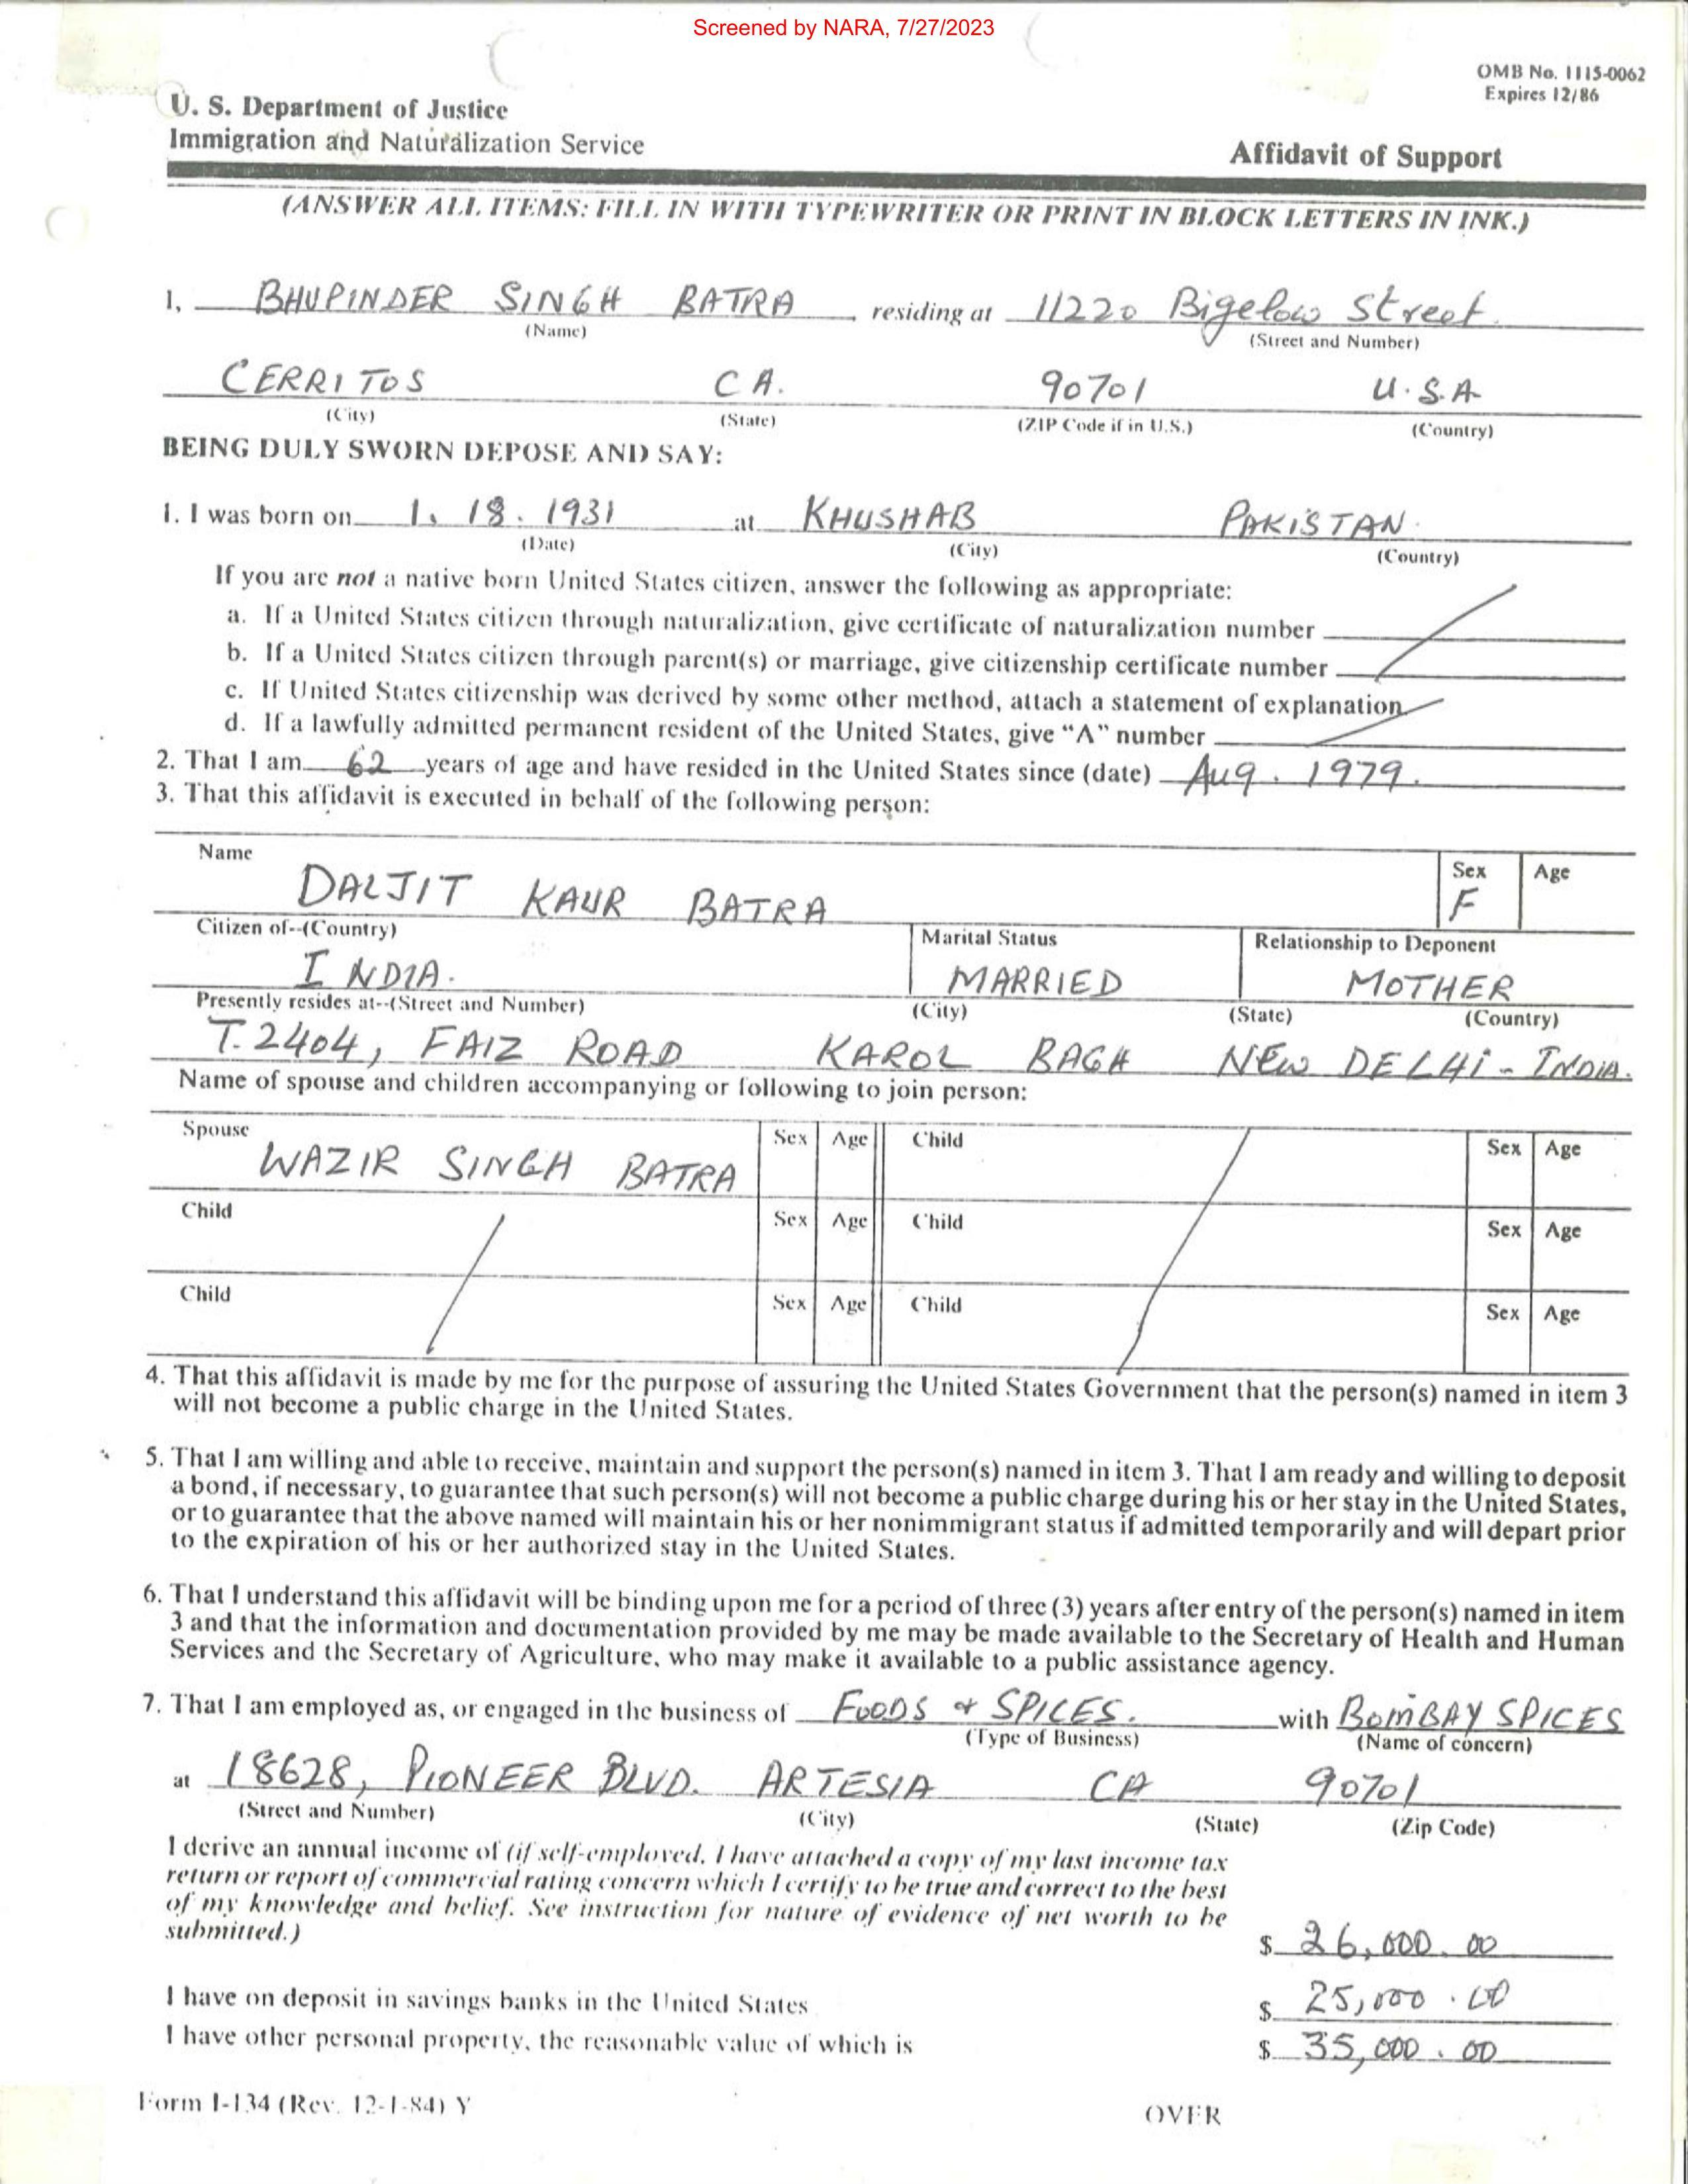 Screened by NARA, 7/27/2023
OMB No. 1115-0062
Expires 12/86
U. S. Department of Justice
Immigration and Naturalization Service
Affidavit of Support
(ANSWER ALL ITEMS: FILL IN WITH TYPEWRITER OR PRINT IN BLOCK LETTERS IN INK.)
I, BHUPINDER SINGH BATRA residing at 11220 Bigelow Street
(Name) (Street and Number)
CERRITOS CA. 90701 U.S.A
(City) (State) (ZIP Code if in U.S.) (Country)
BEING DULY SWORN DEPOSE AND SAY:
1. I was born on 1. 18. 1931 at KHUSHAB PAKISTAN.
(Date) (City) (Country)
If you are not a native born United States citizen, answer the following as appropriate:
a. If a United States citizen through naturalization, give certificate of naturalization number
b. If a United States citizen through parent(s) or marriage, give citizenship certificate number
c. If United States citizenship was derived by some other method, attach a statement of explanation
d. If a lawfully admitted permanent resident of the United States, give "A" number
2. That I am 62 years of age and have resided in the United States since (date) Aug. 1979.
3. That this affidavit is executed in behalf of the following person:
Name Sex Age
DALJIT KAUR BATRA F
Citizen of--(Country) Marital Status Relationship to Deponent
INDIA. MARRIED MOTHER
Presently resides at--(Street and Number) (City) (State) (Country)
T. 2404, FAIZ ROAD KAROL BAGH NEW DELHI - INDIA.
Name of spouse and children accompanying or following to join person:
Spouse Sex Age Child Sex Age
WAZIR SINGH BATRA
Child Sex Age Child Sex Age
Child Sex Age Child Sex Age
4. That this affidavit is made by me for the purpose of assuring the United States Government that the person(s) named in item 3
will not become a public charge in the United States.
5. That I am willing and able to receive, maintain and support the person(s) named in item 3. That I am ready and willing to deposit
a bond, if necessary, to guarantee that such person(s) will not become a public charge during his or her stay in the United States,
or to guarantee that the above named will maintain his or her nonimmigrant status if admitted temporarily and will depart prior
to the expiration of his or her authorized stay in the United States.
6. That I understand this affidavit will be binding upon me for a period of three (3) years after entry of the person(s) named in item
3 and that the information and documentation provided by me may be made available to the Secretary of Health and Human
Services and the Secretary of Agriculture, who may make it available to a public assistance agency.
7. That I am employed as, or engaged in the business of FOODS & SPICES. with BOMBAY SPICES
(Type of Business) (Name of concern)
at 18628, PIONEER BLVD. ARTESIA CA 90701
(Street and Number) (City) (State) (Zip Code)
I derive an annual income of (if self-employed, I have attached a copy of my last income tax
return or report of commercial rating concern which I certify to be true and correct to the best
of my knowledge and belief. See instruction for nature of evidence of net worth to be
submitted.) $ 26,000.00
I have on deposit in savings banks in the United States $ 25,000.00
I have other personal property, the reasonable value of which is $ 35,000.00
Form I-134 (Rev. 12-1-84) Y OVER